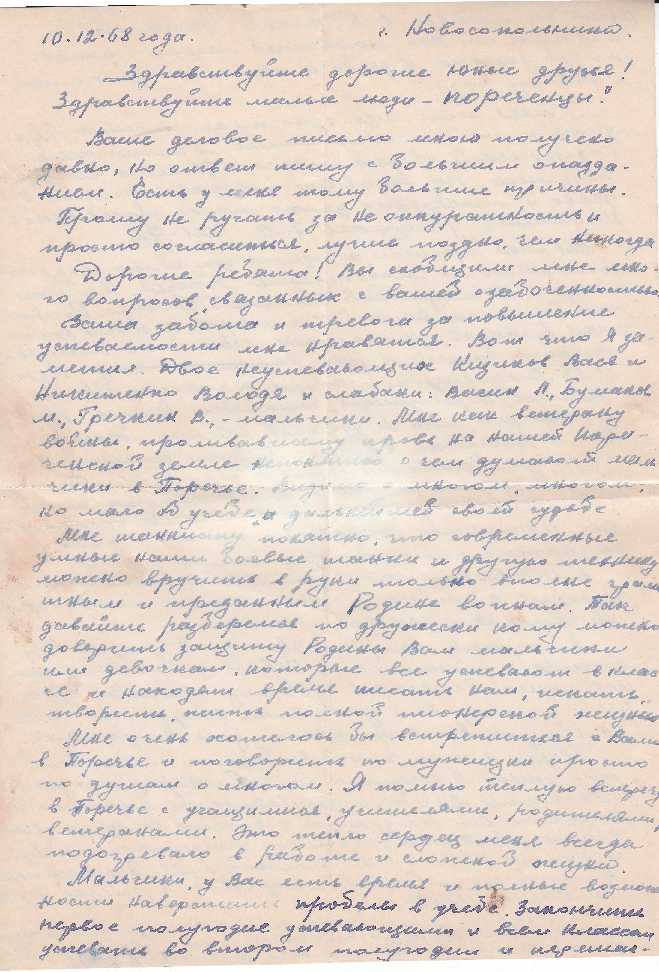 10.12.68 года. г. Новосокольники.
Здравствуйте дорогие юные друзья!
Здравствуйте милые люди – пореченцы!
Ваше деловое письмо мною получено
давно, но ответ пишу с большим опозда-
нием. Есть у меня тому большие причины.
Прошу не ругать за не аккуратность и
просто согласиться, лучше поздно, чем никогда
Дорогие ребята! Вы сообщили мне мно-
го вопросов, связанных с вашей озабоченностью
Ваша забота и тревога за повышение
успеваемости мне нравятся. Вот что я за-
метил. Двое неуспевающих Кициков Вася и
Никитенко Володя и слабаки: Васин П., Буманов
М., Гречкин В., – мальчики. Мне как ветерану
войны, проливавшему кровь на нашей Поре-
ченской земле непонятно о чем думают маль-
чики в Поречье. Видимо о многом, многом,
но мало об учебе, а дальнейшей своей судьбе
Мне танкисту понятно, что современные
умные наши боевые танки и другую технику
можно вручить в руки только вполне грам
тным и преданным Родине воинам. Так
давайте разберемся по дружески кому можно
доверить защиту Родины Вам мальчики
или девочкам, которые все успевают в клас-
се и находят время писать нам, искать,
творить, жить полной пионерской жизнью
Мне очень хотелось бы встретиться с Вами
в Поречье и поговорить по мужски просто
по душам о многом. Я помню теплую встречу
в Поречье с учащимися, учителями, родителями,
ветеранами. Это тепло сердец меня всегда
подогревало в работе и сложной жизни.
Мальчики, у Вас есть время и полные возмож
ности наверстать пробелы в учебе. Закончить
первое полугодие успевающими и всем классом
успевать во втором полугодии и